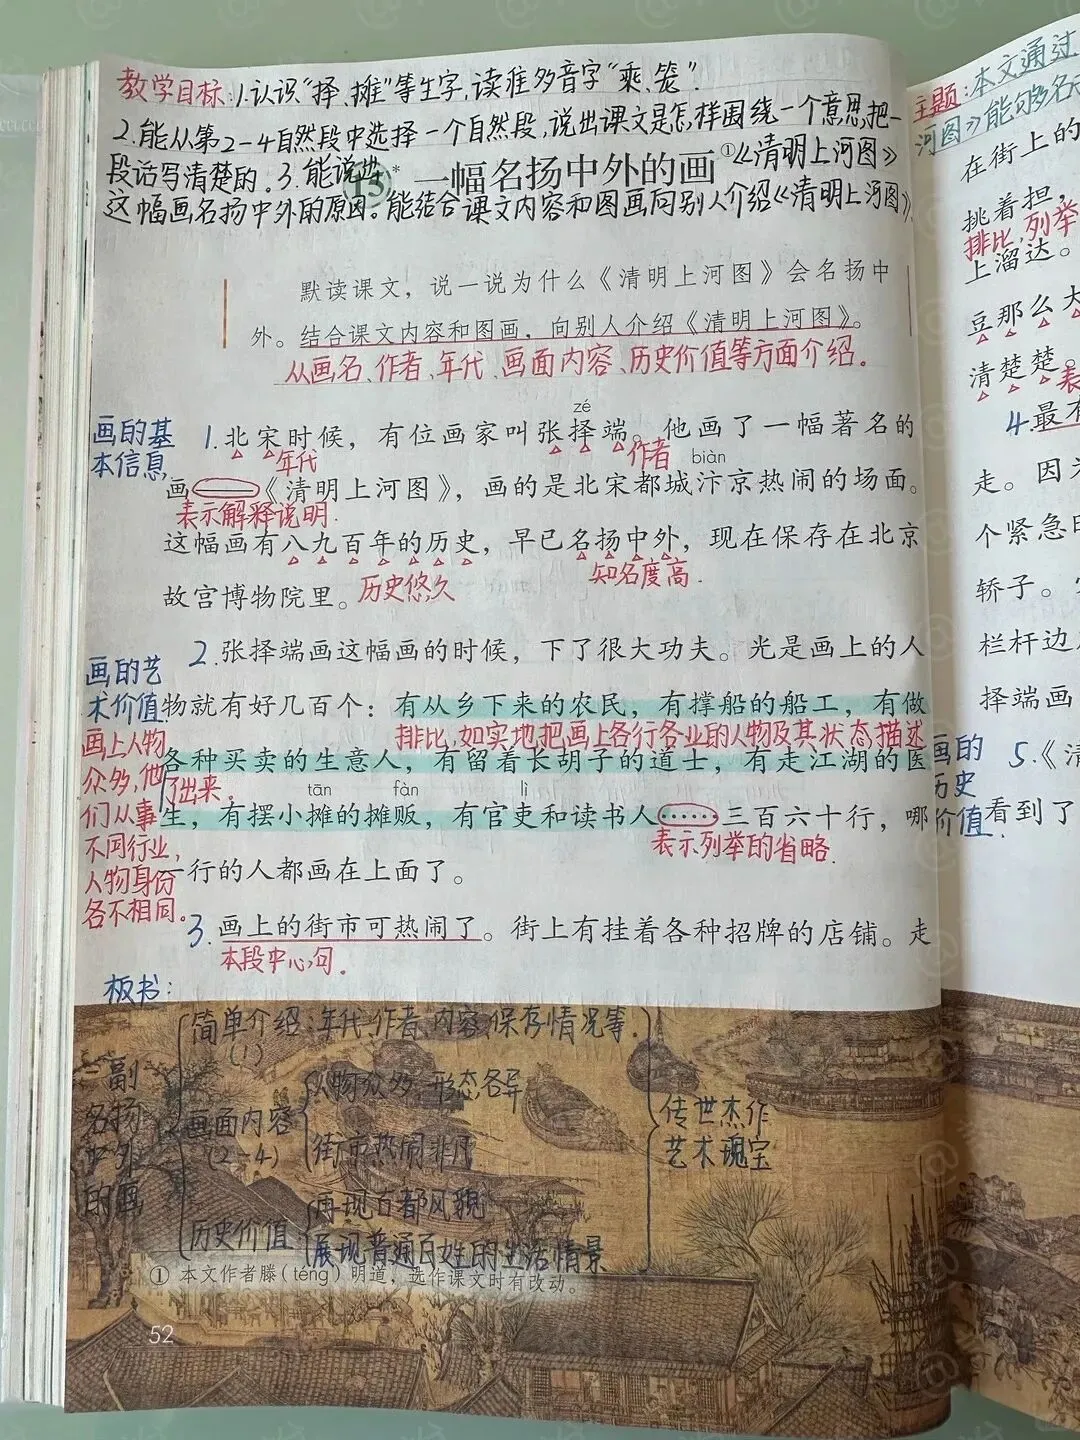 教学目标:1.认识"择、摊"等生字,读准多音字"乘、笼".
2.能从第2-4自然段中选择一个自然段,说出课文是怎样围绕一个意思,把一
段话写清楚的。3.能说出
15* 一幅名扬中外的画① 《清明上河图》
这幅画名扬中外的原因。能结合课文内容和图画向别人介绍《清明上河图》.
默读课文，说一说为什么《清明上河图》会名扬中
外。结合课文内容和图画，向别人介绍《清明上河图》。
从画名、作者、年代、画面内容、历史价值等方面介绍。
画的基
本信息
zé
1.北宋时候，有位画家叫张择端。他画了一幅著名的
年代
作者
biàn
画——《清明上河图》，画的是北宋都城汴京热闹的场面。
表示解释说明.
这幅画有八九百年的历史，早已名扬中外，现在保存在北京
历史悠久
知名度高.
故宫博物院里。
画的艺
术价值
2.张择端画这幅画的时候，下了很大功夫。光是画上的人
物就有好几百个：有从乡下来的农民，有撑船的船工，有做
排比,如实地把画上各行各业的人物及其状态描述
了出来.
各种买卖的生意人，有留着长胡子的道士，有走江湖的医
tān fàn lì
生，有摆小摊的摊贩，有官吏和读书人……三百六十行，哪
表示列举的省略.
一行的人都画在上面了。
画上人物
众多,他
们从事
不同行业,
人物身份
各不相同。
3.画上的街市可热闹了。街上有挂着各种招牌的店铺。走
本段中心句.
板书:
一副
名扬
中外
的画
简单介绍:年代、作者、内容、保存情况等.
(1)
画面内容
(2-4)
人物众多,形态各异
街市热闹非凡
历史价值
再现古都风貌
展现普通百姓的生活情景
传世杰作
艺术瑰宝
① 本文作者滕(téng)明道，选作课文时有改动。
52
主题:本文通过
河图》能够名
在街上的
挑着担，
排比,列举
上溜达。
豆那么大
清楚楚。
4.最
走。因
个紧急
轿子。
栏杆边
择端画
画的
历史
价值
5.《清
看到了